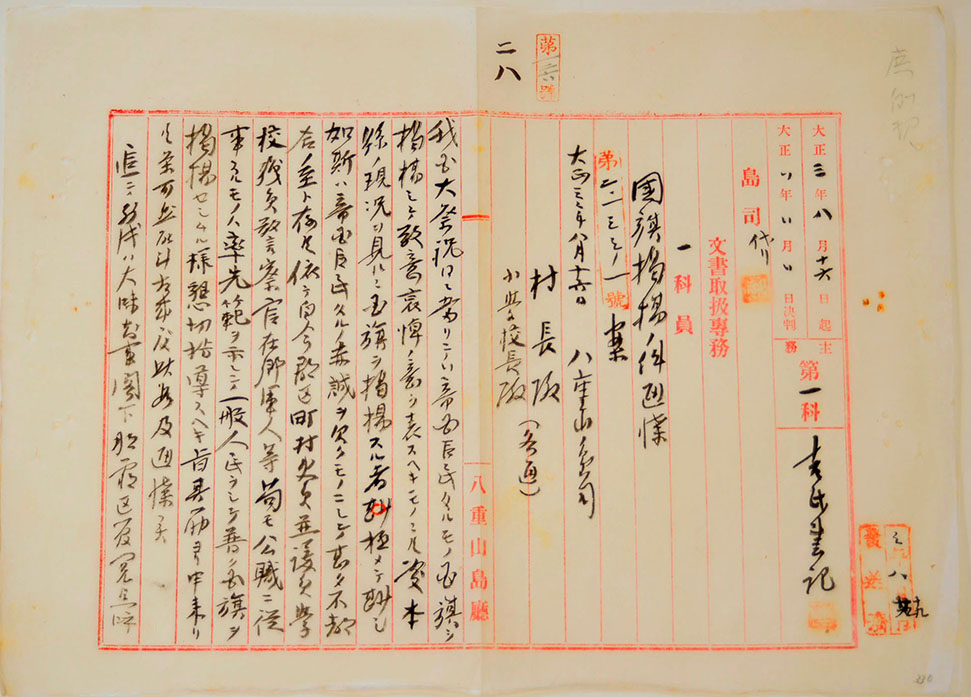 大正三年八月十六日起
大正〃年〃月〃日決判
主務
第一科
吉氏書記
島司代リ
文書取扱専務
一科員
國旗掲揚ノ件通牒
第六一三三ノ一號 案
大正三年八月十六日 八重山島司
村長殿
小学校長殿 (各通)
八重山島廳
我国大祭祝日ニ當リテハ帝国臣民タルモノ国旗ヲ
掲揚シテ敬意哀悼ノ意ヲ表スヘキモノニ候處本
縣ノ現況ヲ見ルニ国旗ヲ掲揚スル者尠極メテ尠シ
如斯ハ帝国臣民タルノ赤誠ヲ欠クモノニシテ甚タ不都
合ノ至ト存候依テ向今郡区町村吏員並議員学
校職員警察官在郷軍人等苟モ公職ニ従
事スルモノハ率先範ヲ示シテ一般人民ヲシテ普ク国旗ヲ
掲揚セシムル様懇切指導スヘキ旨其筋ヨリ申来リ
候条
此段及通牒候
追テ
二八
第 號
八